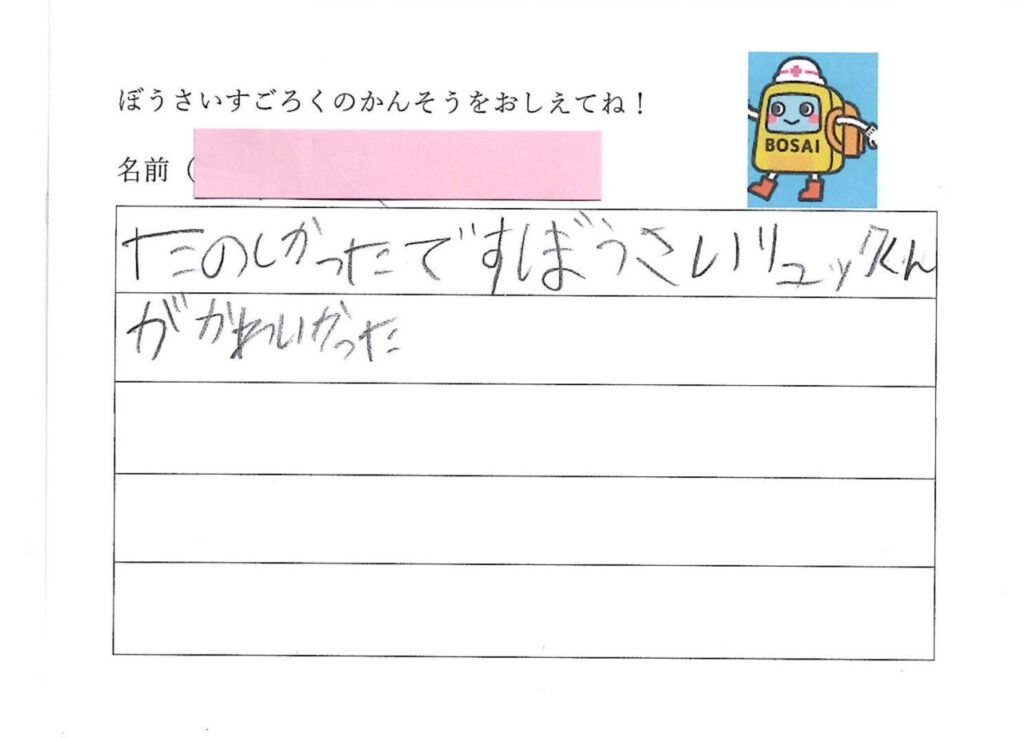 ぼうさいすごろくのかんそうをおしえてね！
BOSAI
名前（
たのしかったですぼうさいリュックくん
がかわいかった